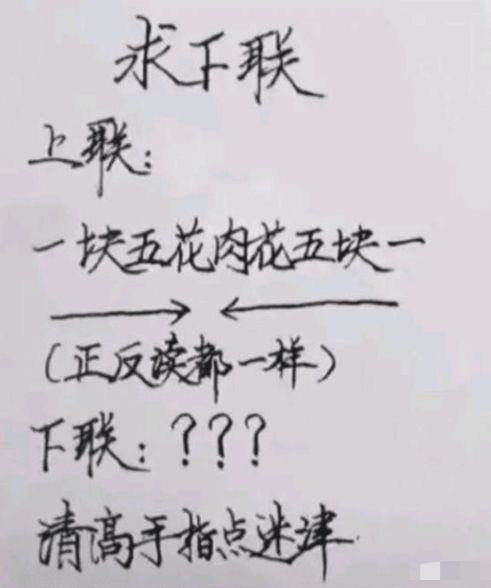 求下联
上联：
一块五花肉花五块一
(正反读都一样)
下联：？？？
清高手指点迷津